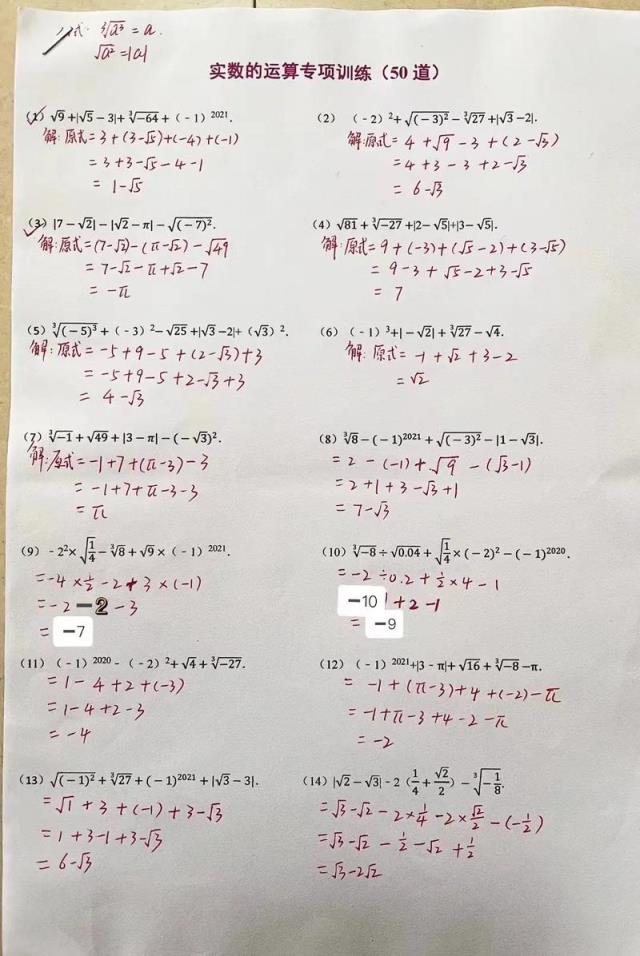 公式: ∛a³ = a.
√a² = |a|
实数的运算专项训练（50 道）
（1）√9+|√5－3|+∛－64+（－1）²⁰²¹.
解: 原式= 3 + (3-√5)+(-4)+(-1)
= 3+3-√5-4-1
= 1-√5
（2）（－2）²+√(－3)²－∛27+|√3－2|.
解:原式= 4 +√9 - 3 + (2-√3)
= 4+3-3+2-√3
= 6-√3
（3）|7－√2|－|√2－π|－√(－7)².
解:原式= (7-√2)-(π-√2)-√49
= 7-√2-π+√2-7
= -π
（4）√81+∛－27+|2－√5|+|3－√5|.
解:原式= 9+(-3)+(√5-2)+(3-√5)
= 9-3+√5-2+3-√5
= 7
（5）∛(－5)³+（－3）²－√25+|√3－2|+（√3）².
解: 原式= -5+9-5+(2-√3)+3
= -5+9-5+2-√3+3
= 4-√3
（6）（－1）³+|－√2|+∛27－√4.
解: 原式= -1+√2+3-2
= √2
（7）∛－1+√49+|3－π|－(－√3)².
解:原式= -1+7+(π-3)-3
= -1+7+π-3-3
= π
（8）∛8－(－1)²⁰²¹+√(－3)²－|1－√3|.
= 2 - (-1)+√9 - (√3-1)
= 2+1+3-√3+1
= 7-√3
（9）－2²×√(1/4)－∛8+√9×（－1）²⁰²¹.
= -4 × 1/2 -2 + 3 × (-1)
= -2 -2 -3
= -7
（10）∛－8÷√0.04+√(1/4)×(－2)²－(－1)²⁰²⁰.
= -2 ÷0.2 + 1/2 ×4 - 1
-10 +2 -1
= -9
（11）（－1）²⁰²⁰－（－2）²+√4+∛－27.
= 1-4+2+(-3)
= 1-4+2-3
= -4
（12）（－1）²⁰²¹+|3－π|+√16+∛－8－π.
= -1+(π-3)+4+(-2)-π
= -1+π-3+4-2-π
= -2
（13）√(－1)²+∛27+(－1)²⁰²¹+|√3－3|.
= √1 + 3 + (-1) + 3-√3
= 1+3-1+3-√3
= 6-√3
（14）|√2－√3|－2（1/4+√2/2）－∛－1/8.
= √3-√2 - 2×1/4 - 2×√2/2 - (-1/2)
= √3-√2 - 1/2 - √2 + 1/2
= √3-2√2